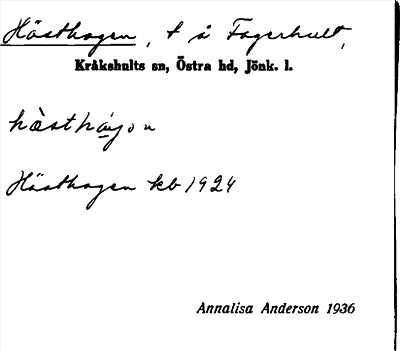 Hästhagen, t å Fagerhult,
Kråkshults sn, Östra hd, Jönk. l.
hæ̀sthágon
Hästhagen kb 1924
Annalisa Anderson 1936